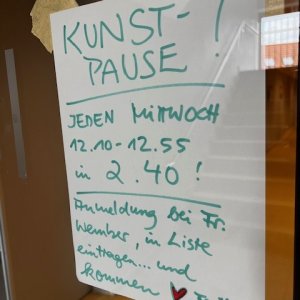 KUNST-
PAUSE!
JEDEN MITTWOCH
12.10-12.55
in 2.40!
Anmeldung bei Fr.
Wember, in Liste
eintragen... und
kommen